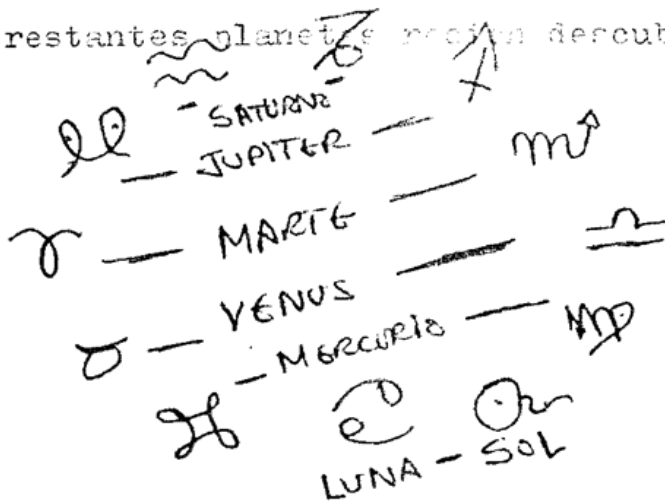 restantes planetas recien descub
- SATURNO -
— JUPITER —
— MARTE —
— VENUS —
- MERCURIO —
LUNA - SOL